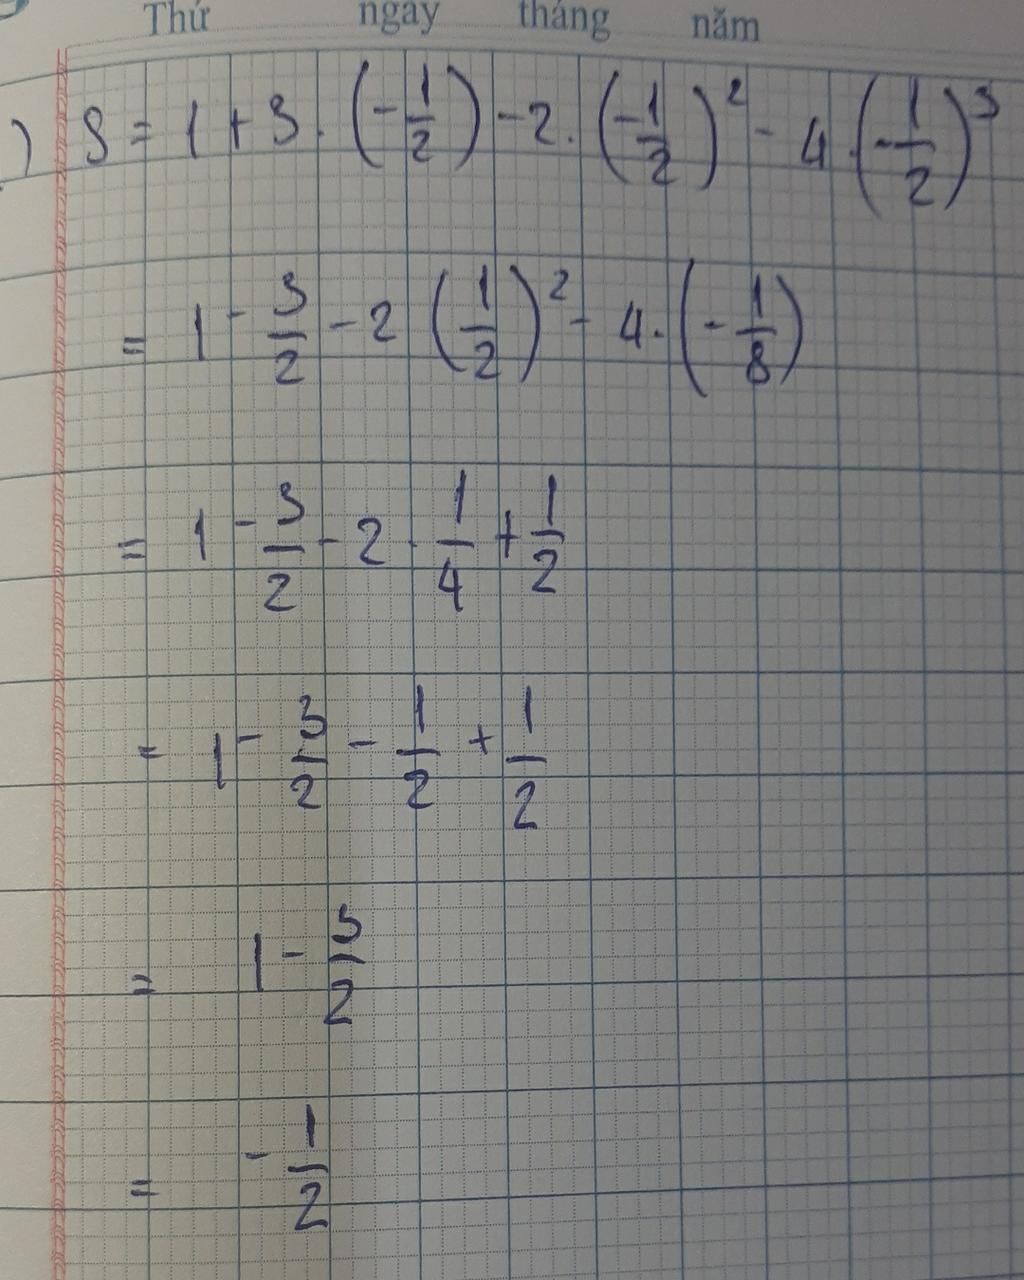 Thứ ngày tháng năm
) S = 1 + 3 . (-1/2) - 2 . (-1/2)² - 4 . (-1/2)³
= 1 - 3/2 - 2 (1/2)² - 4 . (-1/8)
= 1 - 3/2 - 2 . 1/4 + 1/2
= 1 - 3/2 - 1/2 + 1/2
= 1 - 3/2
= - 1/2